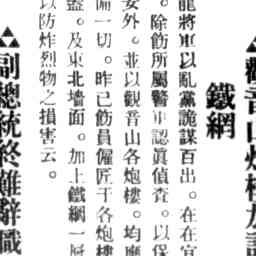 ▲觀音山炮樓加設
鐵網
龍將軍以亂黨詭謀百出。在在宜
。除飭所屬警軍認眞偵査。以保
安外。並以觀音山各炮樓。均應
備一切。昨已飭員僱匠于各炮樓
蓋。及東北墻面。加上鐵網一層
以防炸烈物之損害云。
▲副總統終難辭職